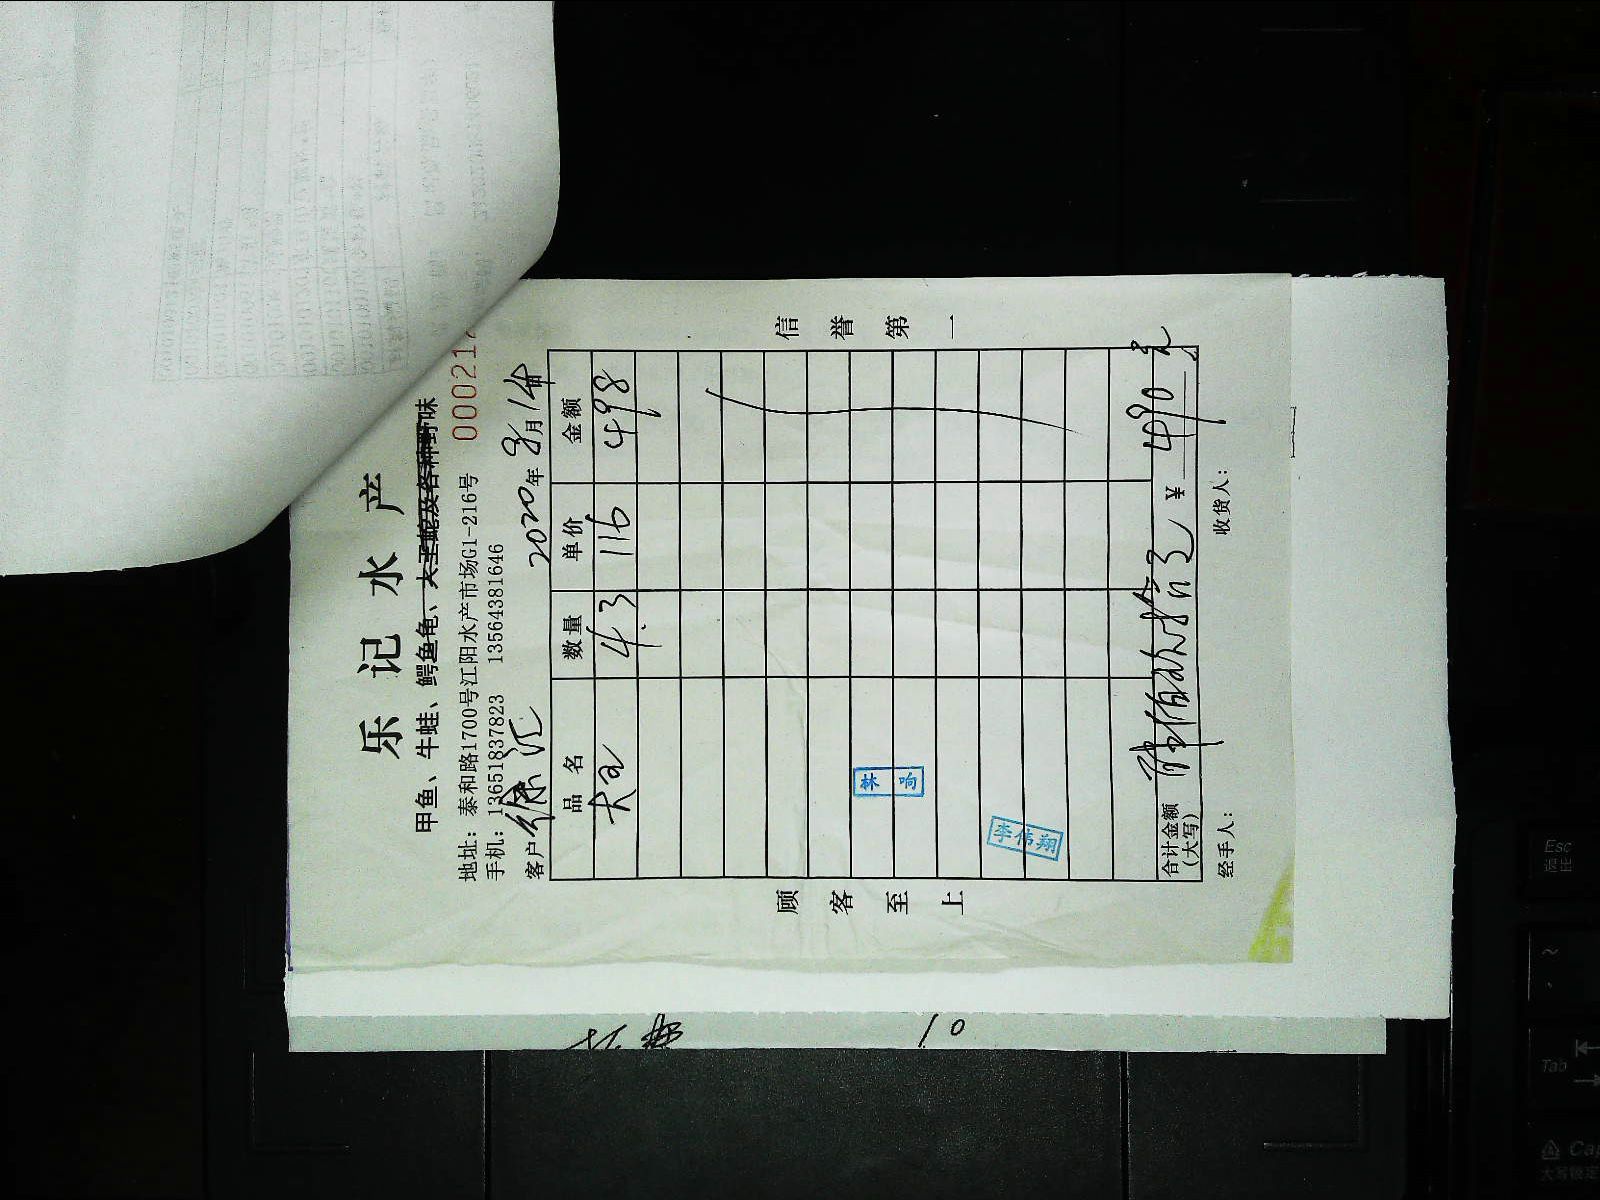 乐记水产
甲鱼、牛蛙、鳄鱼龟、大王蛇及各种野味
地址：泰和路1700号江阳水产市场G1-216号
000217
手机：13651837823 13564381646
客户 徐汇 2020年8月14日
品名 数量 单价 金额
大王 4.3 116 498
林 响
李伟翔
合计金额
(大写)
¥ 490 元
经手人： 收货人：
顾客至上
信誉第一
10
Esc
Tab
Cap